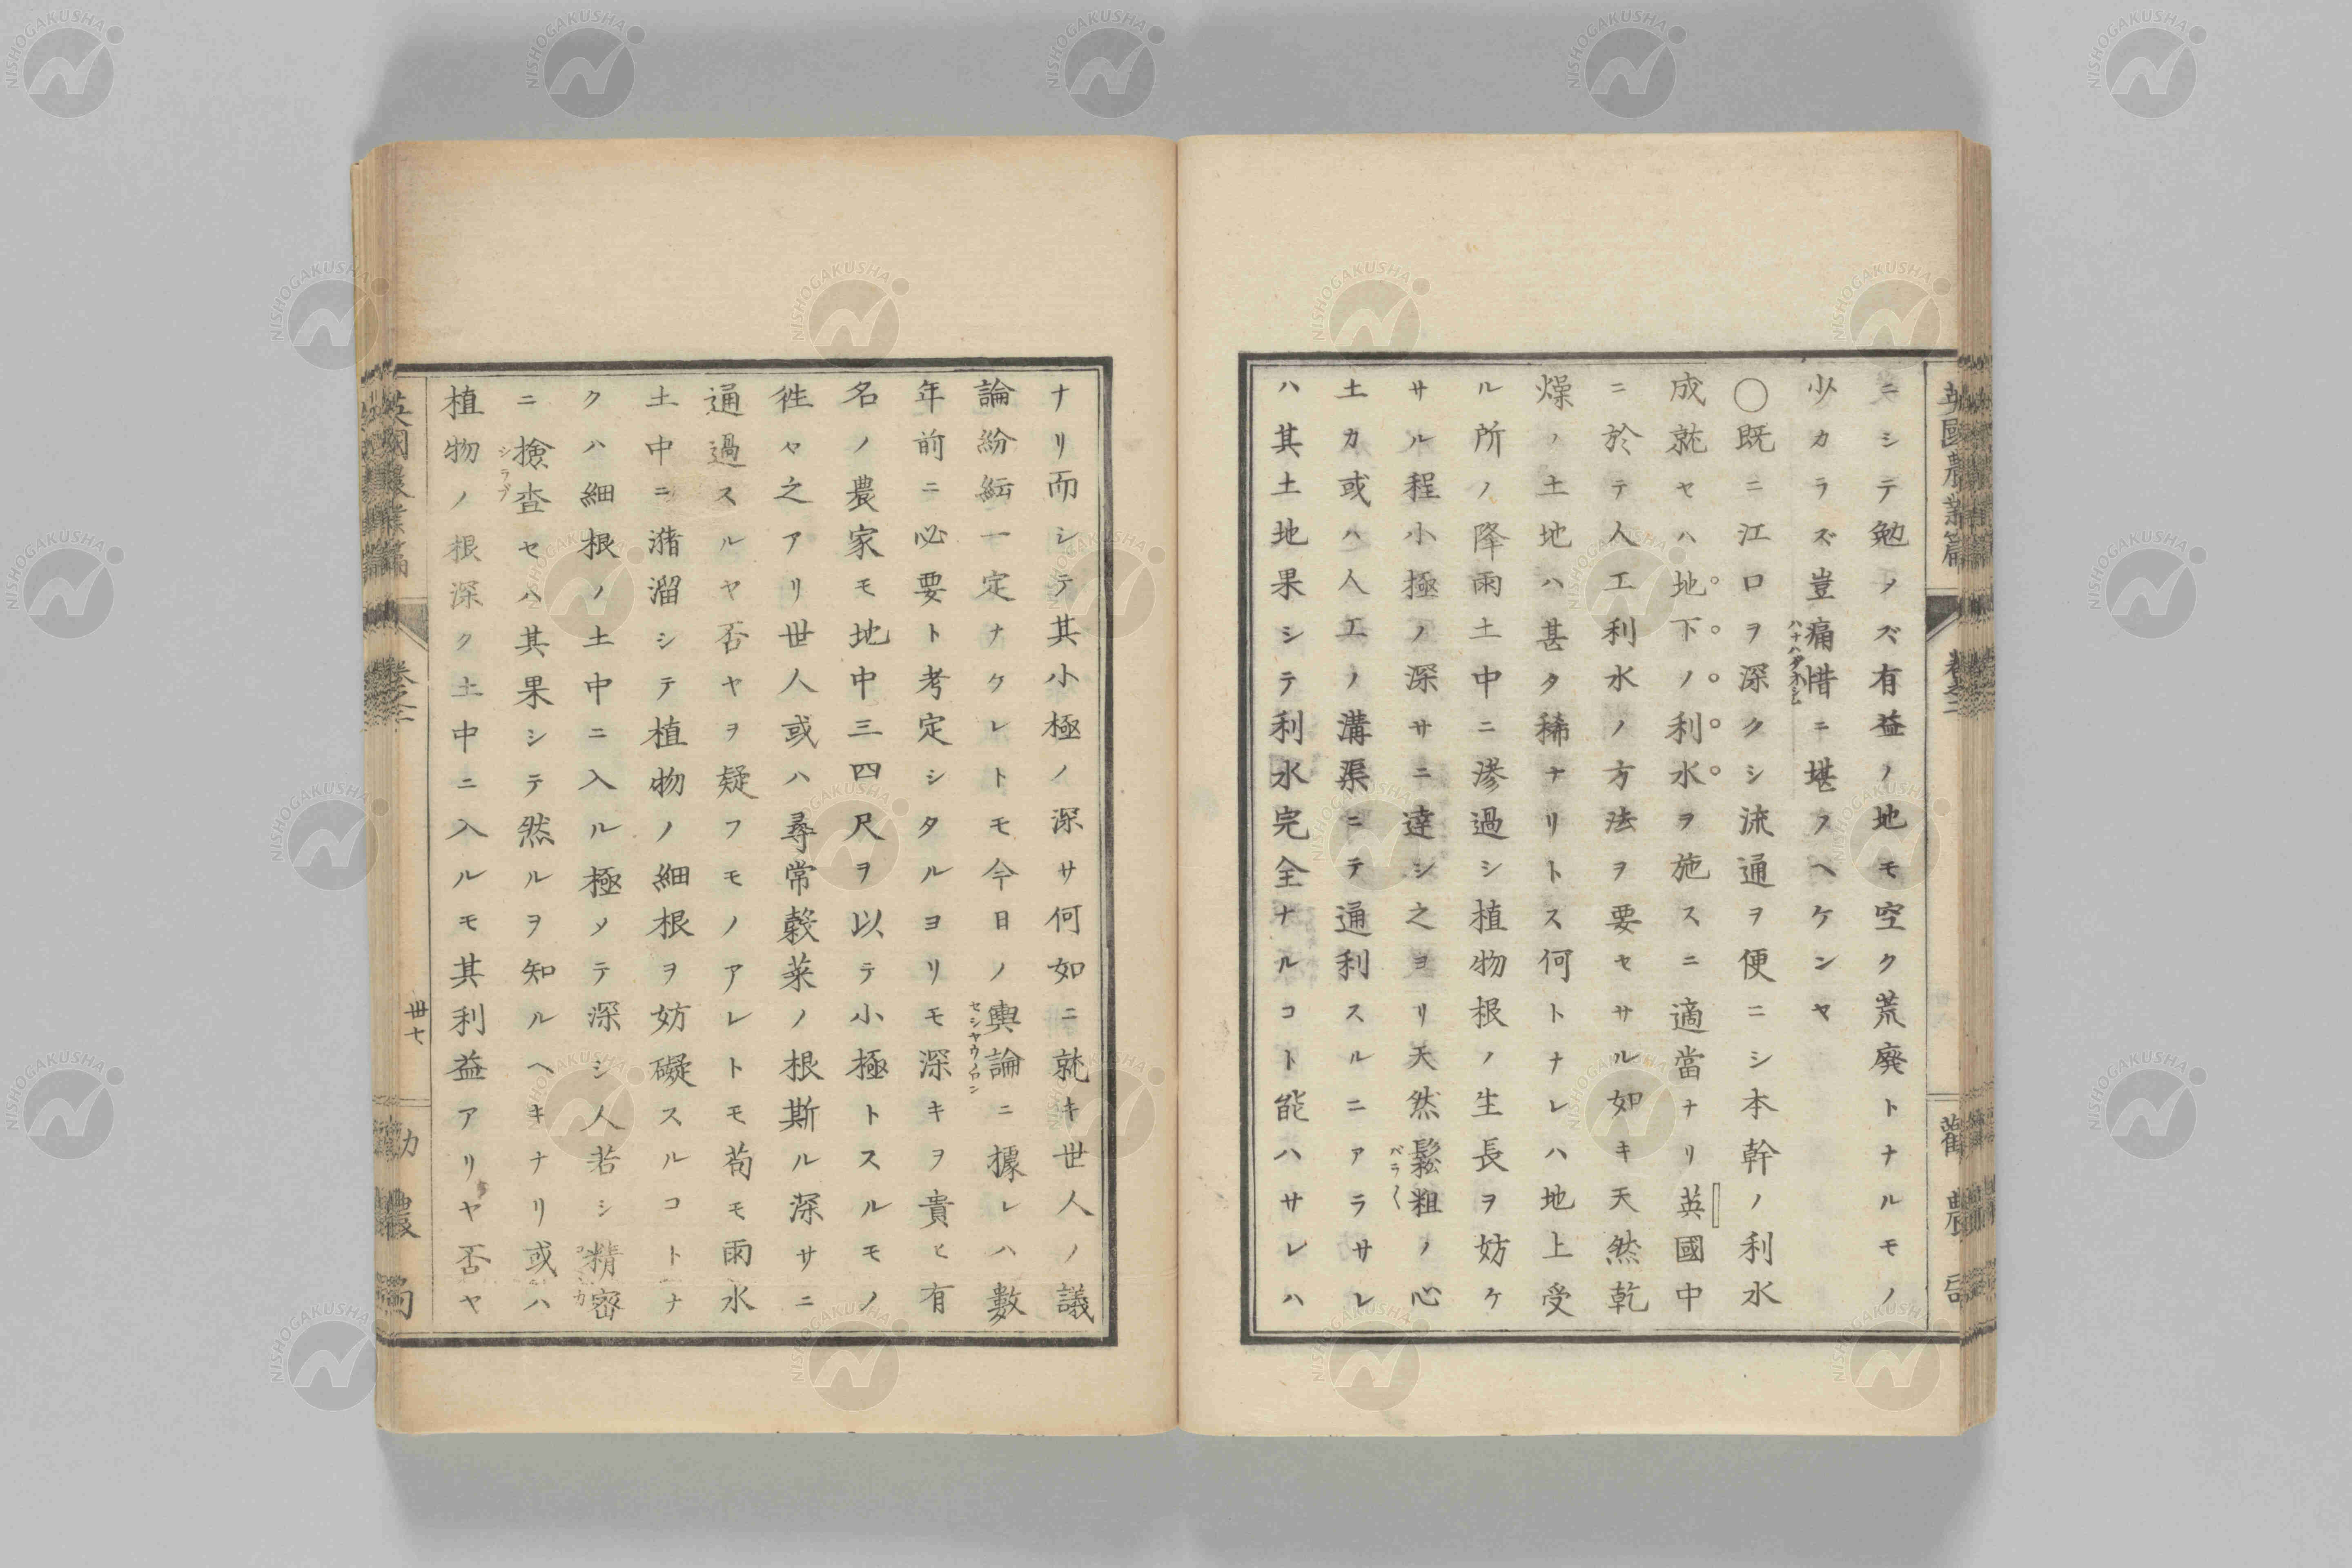 英國農業篇 卷之二 勸農局
ニシテ勉ノズ有益ノ地モ空ク荒廃トナルモノ
少カラズ豈痛惜ニ堪フヘケンヤ
〇既ニ江口ヲ深クシ流通ヲ便ニシ本幹ノ利水
成就セハ地下ノ利水ヲ施スニ適當ナリ英國中
ニ於テ人工利水ノ方法ヲ要セサル如キ天然乾
燥ノ土地ハ甚タ稀ナリトス何トナレハ地上受
ル所ノ降雨土中ニ滲過シ植物根ノ生長ヲ妨ケ
サル程小極ノ深サニ達シ之ヨリ天然鬆粗ノ心
バラ〱
土カ或ハ人工ノ溝渠ニテ通利スルニアラサレ
ハ其土地果シテ利水完全ナルコト能ハサレハ
ナリ而シテ其小極ノ深サ何如ニ就キ世人ノ議
論紛紜一定ナクレトモ今日ノ輿論ニ據レハ數
セシヤウノロン
年前ニ必要ト考定シタルヨリモ深キヲ貴ヒ有
名ノ農家モ地中三四尺ヲ以テ小極トスルモノ
徃々之アリ世人或ハ尋常穀菜ノ根斯ル深サニ
通過スルヤ否ヤヲ疑フモノアレトモ苟モ雨水
土中ニ瀦溜シテ植物ノ細根ヲ妨礙スルコトナ
クハ細根ノ土中ニ入ル極メテ深シ人若シ精宻
ニ撿査セハ其果シテ然ルヲ知ルヘキナリ或ハ
シラブ
植物ノ根深ク土中ニ入ルモ其利益アリヤ否ヤ
卅七
NISHOGAKUSHA